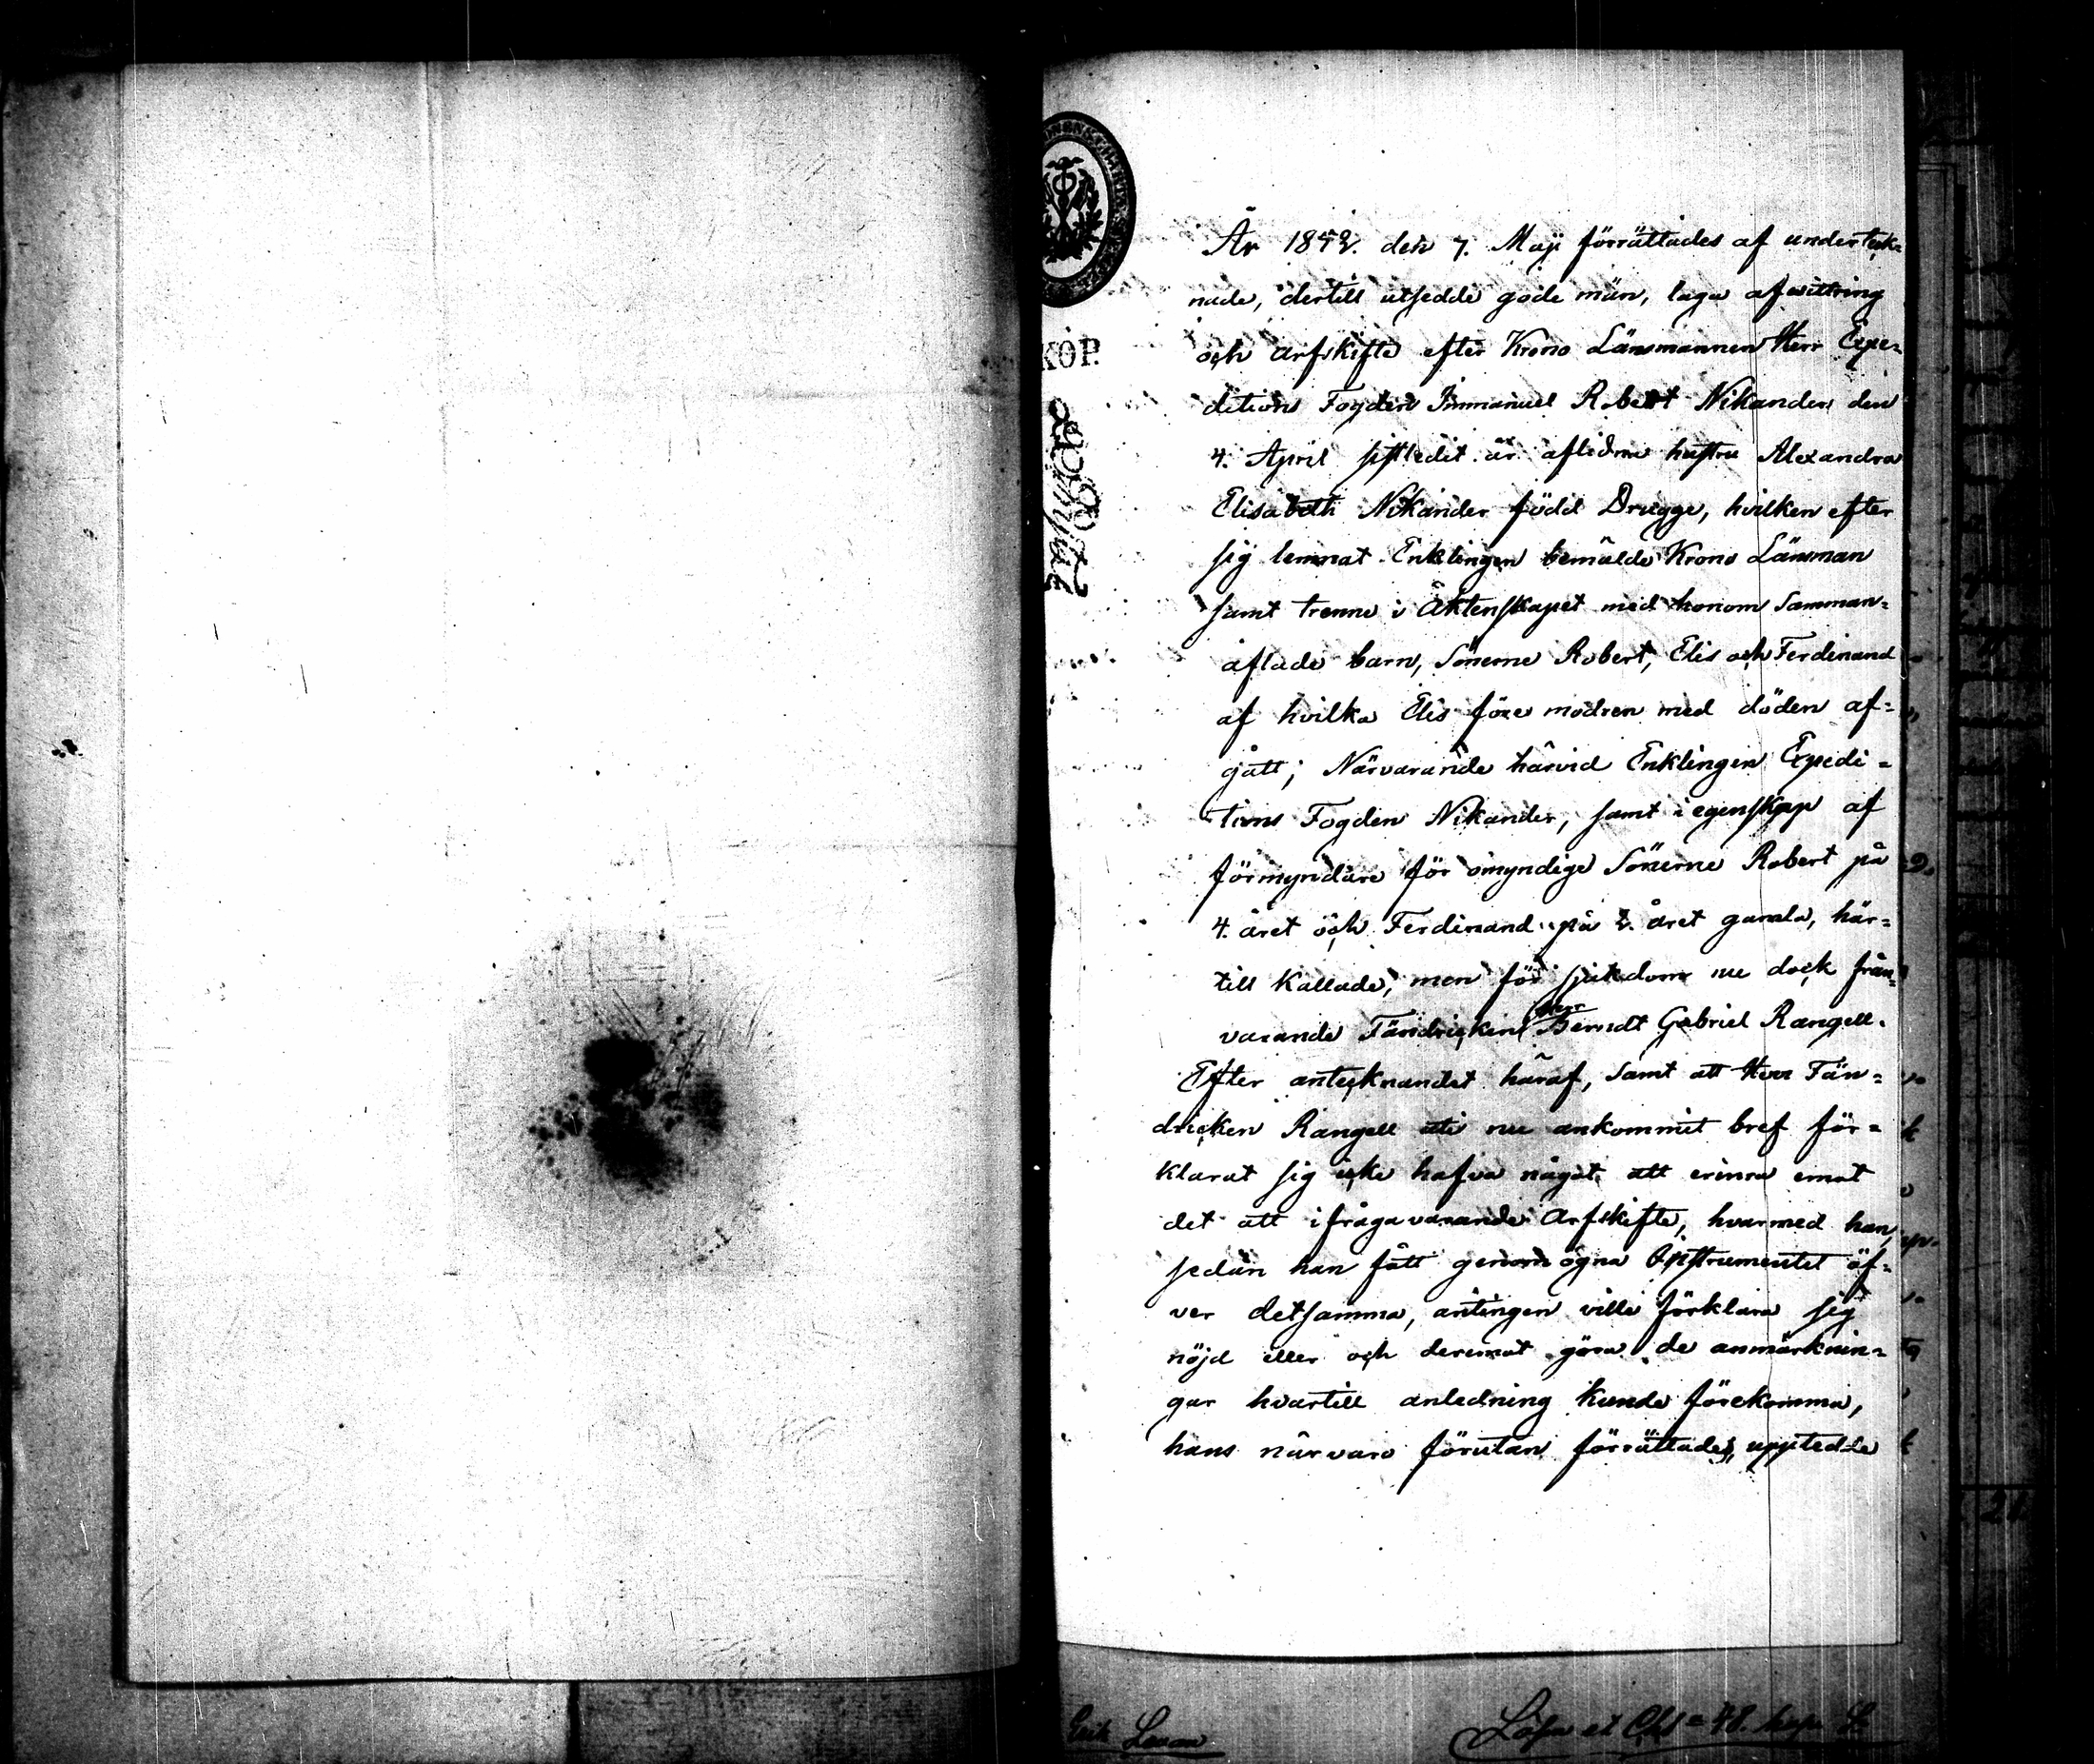 KOP.
År 1842. den 7. Maji förrättades af underteck=
nade, dertill utsedde gode män, laga afwittring
och arfskifte efter Krono Länsmannen Herr Expe=
ditions Fogden Immanuel Robert Nikanders den
4. April sistledit år aflidna hustru Alexandra
Elisabeth Nikander född Drugge, hvilken efter
sig lemnat Enklingen bemälde Krono Länsman
samt trenne i Äktenskapet med honom samman=
aflade barn, Sönerne Robert, Elis och Ferdinand
af hvilka Elis före modren med döden af=
gått; Närvarande härvid Enklingen Expedi=
tions Fogden Nikander, samt i egenskap af
förmyndare för omyndige Sönerne Robert på
4. året och Ferdinand på 2. året gamla, här=
till kallade, men för sjukdom nu dock från=
varande Fändricken Herr Berndt Gabriel Rangell.
Efter antecknandet häraf, samt att Herr Fän=
dricken Rangell uti nu ankommit bref för=
klarat sig icke hafva något att erinra emot
det att ifrågavarande Arfskifte, hvarmed han,
sedan han fått genom ögna Instrumentet öf=
ver detsamma, antingen ville förklara sig
nöjd eller och deremot göra de anmärknin=
gar hvartill anledning kunde förekomma,
hans närvaro förutan förrättades, upptedde
Erik